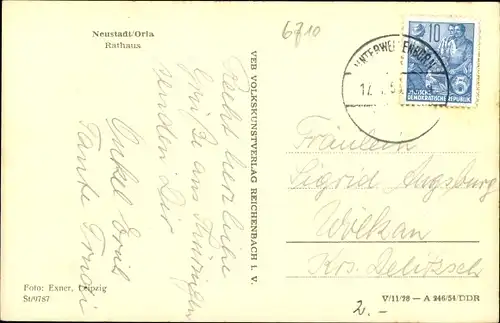 Neustadt/Orla
Rathaus
6710
10
UNTERWELLENBORN
17.
5
DEUTSCHE
DEMOKRATISCHE REPUBLIK
Recht herzliche
Grüße aus Thüringen
senden Dir
Onkel Emil
Tante Trudi
VEB VOLKSKUNSTVERLAG REICHENBACH I. V.
Fräulein
Sigrid Augsburg
Wölkau
Krs. Delitzsch
Foto: Exner, Leipzig
St/9787
2.-
V/11/28 — A 246/54/DDR